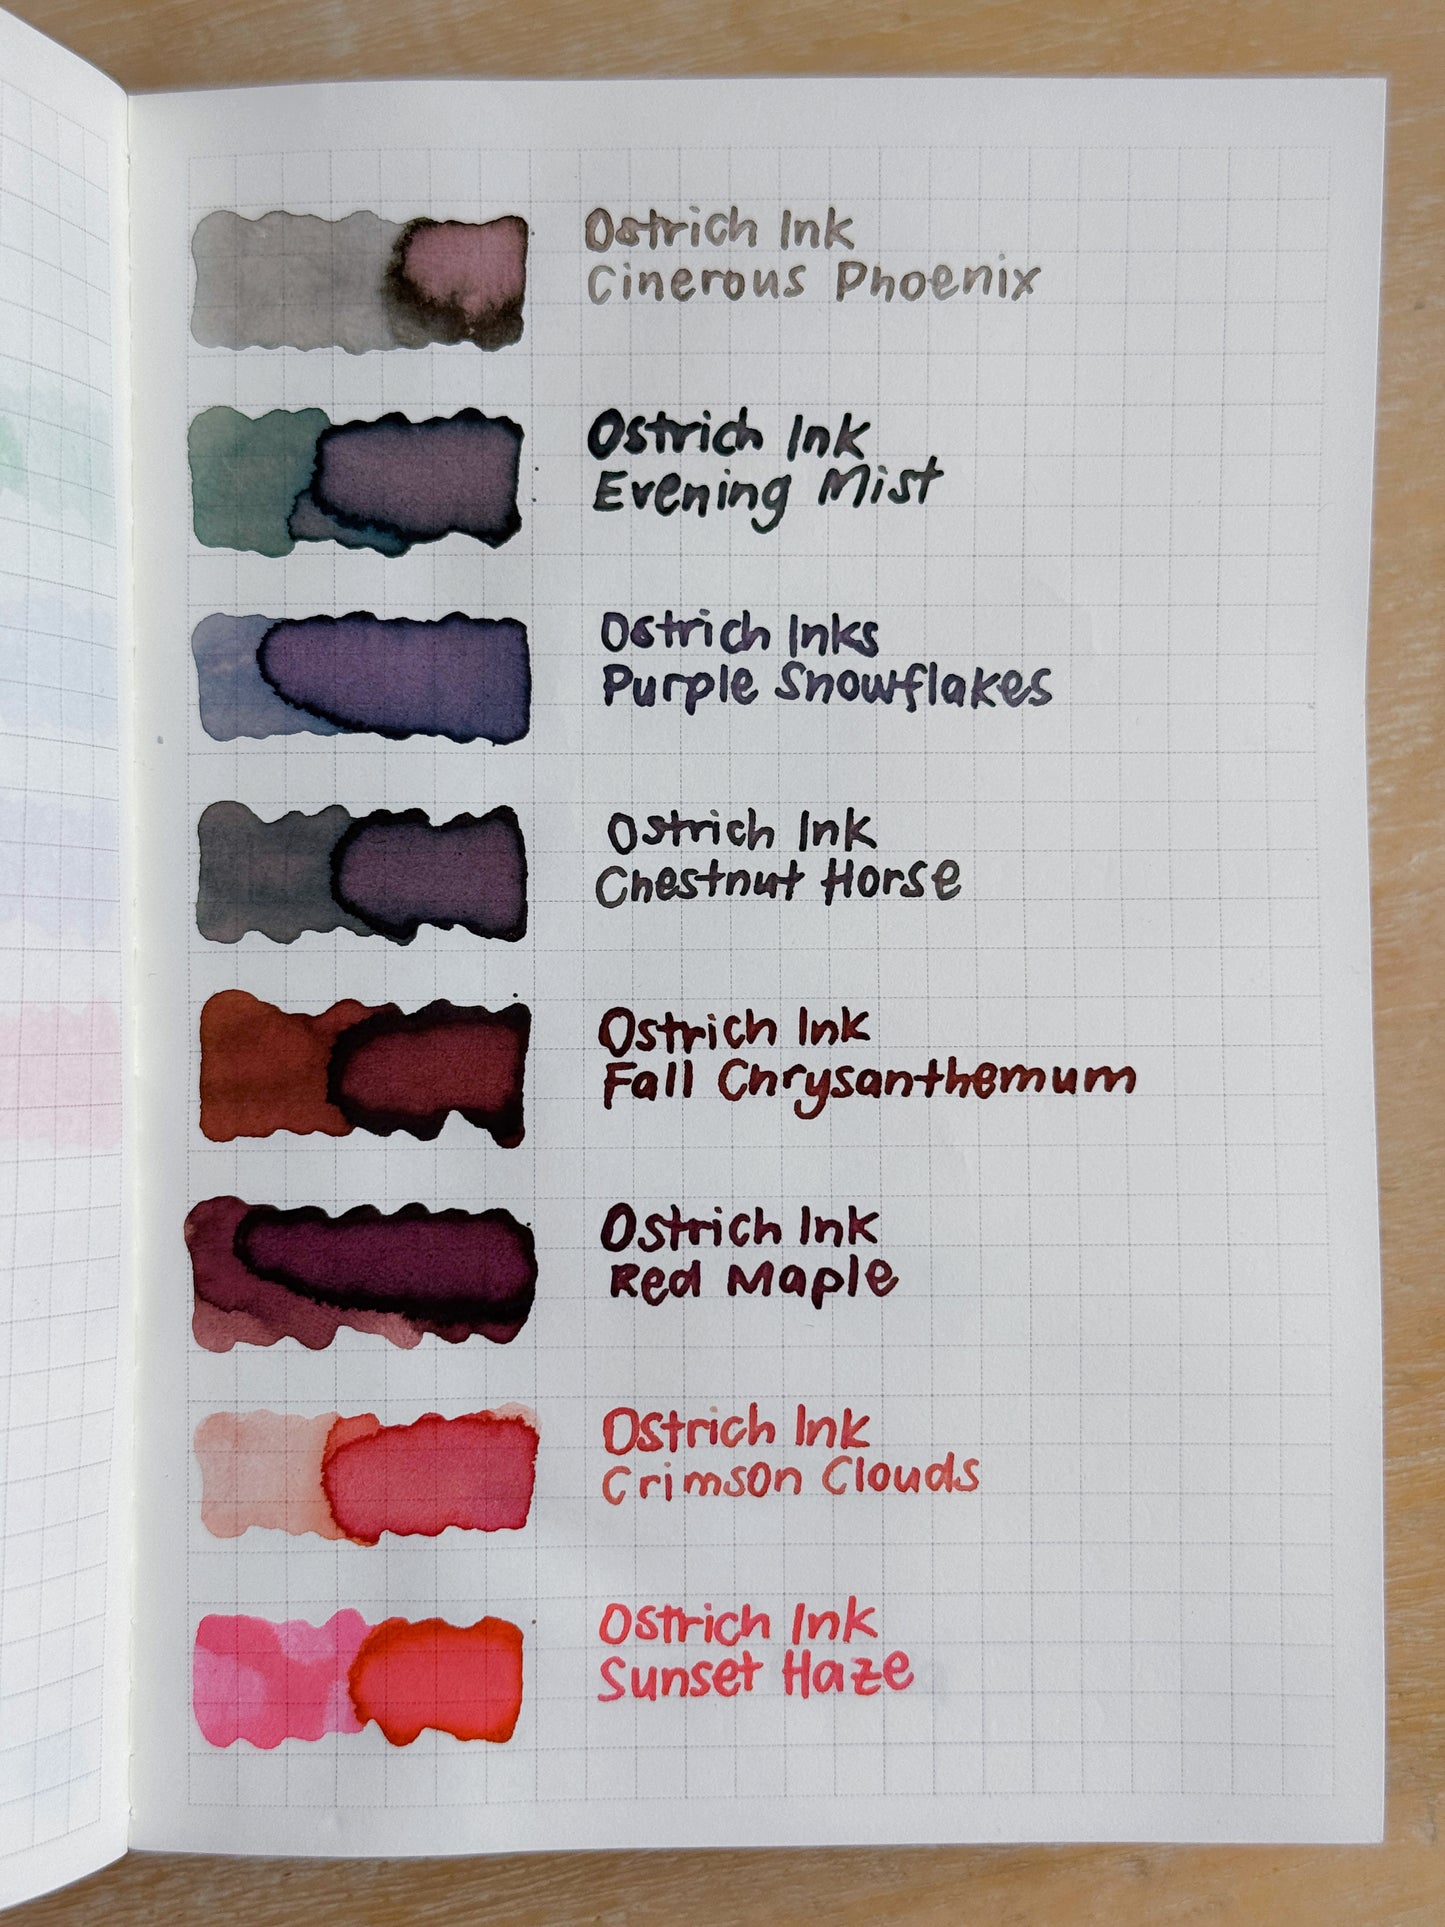 Ostrich Ink
Cinerous Phoenix
Ostrich Ink
Evening Mist
Ostrich Inks
Purple Snowflakes
Ostrich Ink
Chestnut Horse
Ostrich Ink
Fall Chrysanthemum
Ostrich Ink
Red Maple
Ostrich Ink
Crimson Clouds
Ostrich Ink
Sunset Haze